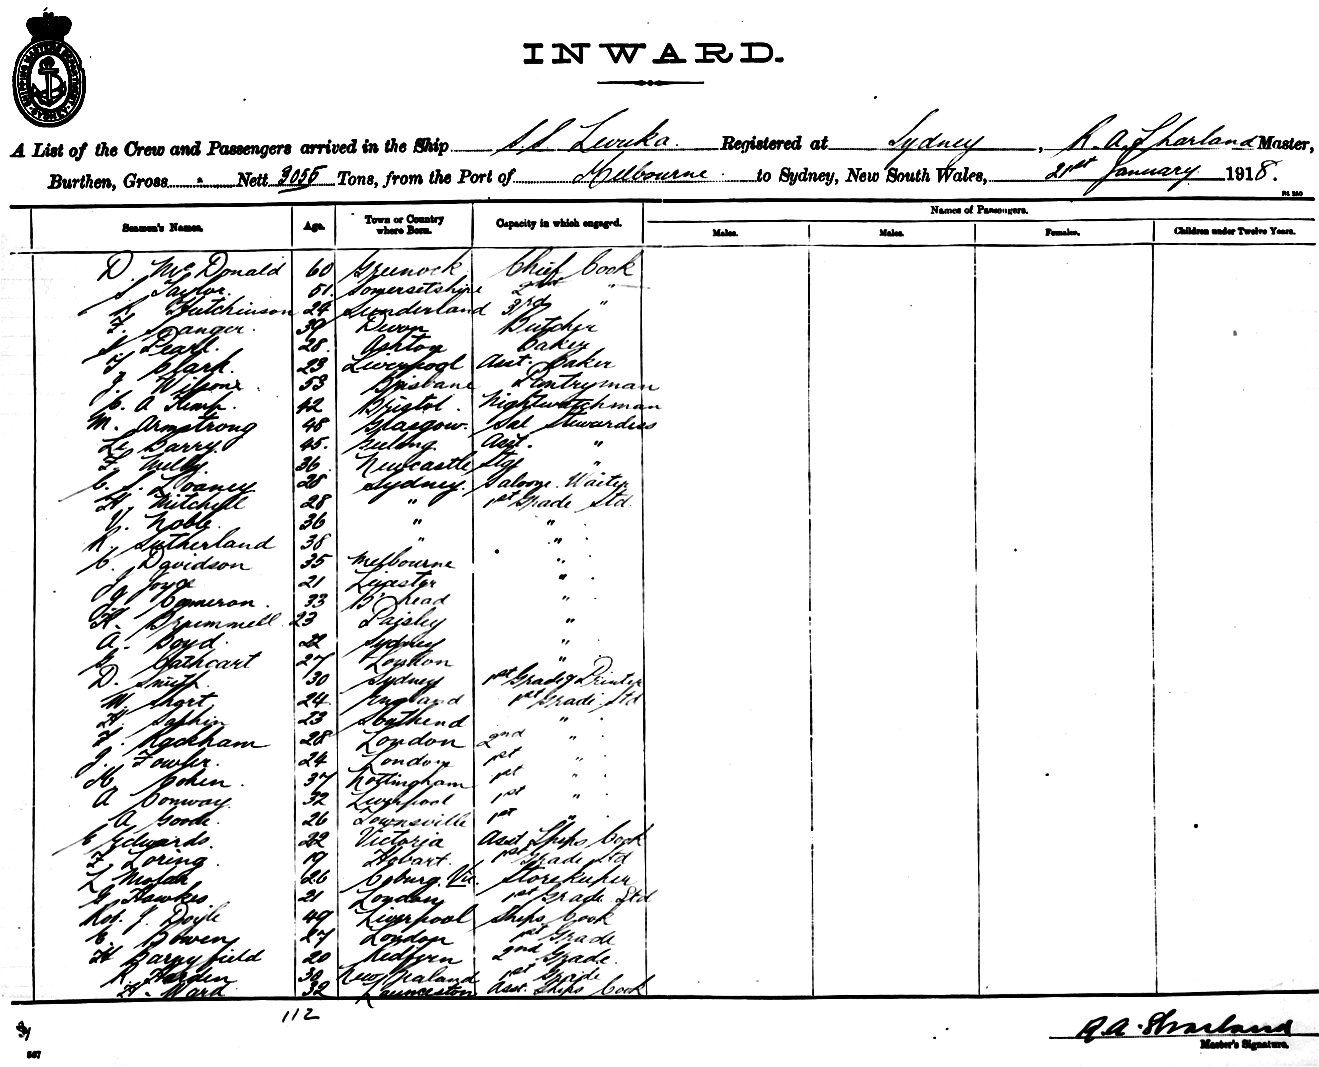 SHIPPING MASTER'S DEPARTMENT SYDNEY
INWARD.
A List of the Crew and Passengers arrived in the Ship S S Levuka. Registered at Sydney, R. A. Sharland Master,
Burthen, Gross Nett 3055 Tons, from the Port of Melbourne to Sydney, New South Wales, 21st January 1918.
Names of Passengers.
Seamen's Names. Age. Town or Country where Born. Capacity in which engaged. Males. Males. Females. Children under Twelve Years.
D. McDonald 60 Greenock Chief Cook
S. Taylor. 51. Somersetshire 2nd "
Hutchinson 24 Sunderland 3rd "
F. Spanger. 39 Devon Butcher
Pearl. 28. Ashton Baker
Clark. 23 Liverpool Asst. Baker
J. Wilson. 53 Brisbane Pantryman
C. A Kemp. 42 Bristol. Nightwatchman
M. Armstrong 48 Glasgow. Sal Stewardess
Barry 45. Geelong Asst. "
F. Welby. 36 Newcastle Stge "
C. S. 28 Sydney. Saloon Waiter
H. Mitchell 28 " 1st Grade Std.
V. Noble. 36 " "
Sutherland 38 " "
C. Davidson 35 Melbourne "
J. Joyce 21 Leicester "
Cameron. 33 B'head "
H. Drummell 23 Paisley "
A. Boyd. 22 Sydney "
G. Cathcart 27 London "
D. Smith 30 Sydney 1st Grade & Printer
W. Short 24 England 1st Grade Std
23 Southend "
F. Rackham 28 London 2nd "
J. Fowler. 24 London 1st "
M. Cohen. 37 Nottingham 1st "
A Conway. 32 Liverpool 1st "
A Goode. 26 Townsville 1st "
E Edwards. 22 Victoria Asst. Ships Cook
Loring. 19 Hobart. 1st Grade Std
26 Coburg. Vic. Storekeeper
G. Hawkes. 21 London 1st Grade Std
Rot. J. Doyle 49 Liverpool Ships Cook
C. Bowen 27 London 1st Grade
H Barnyfield 20 Redfern 2nd Grade.
R. Harden 30 New Zealand 1st Grade
H. Ward 32 Launceston Asst. Ships Cook
112
R A. Sharland
Master's Signature.